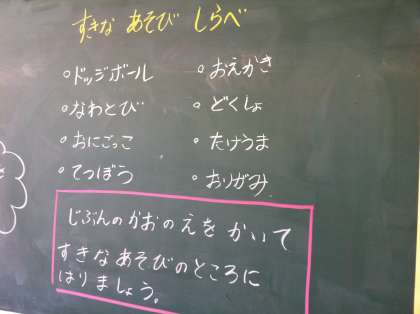 すきな あそび しらべ
・ドッジボール
・なわとび
・おにごっこ
・てつぼう
・おえかき
・どくしょ
・たけうま
・おりがみ
じぶんのかおのえをかいて
すきなあそびのところに
はりましょう。